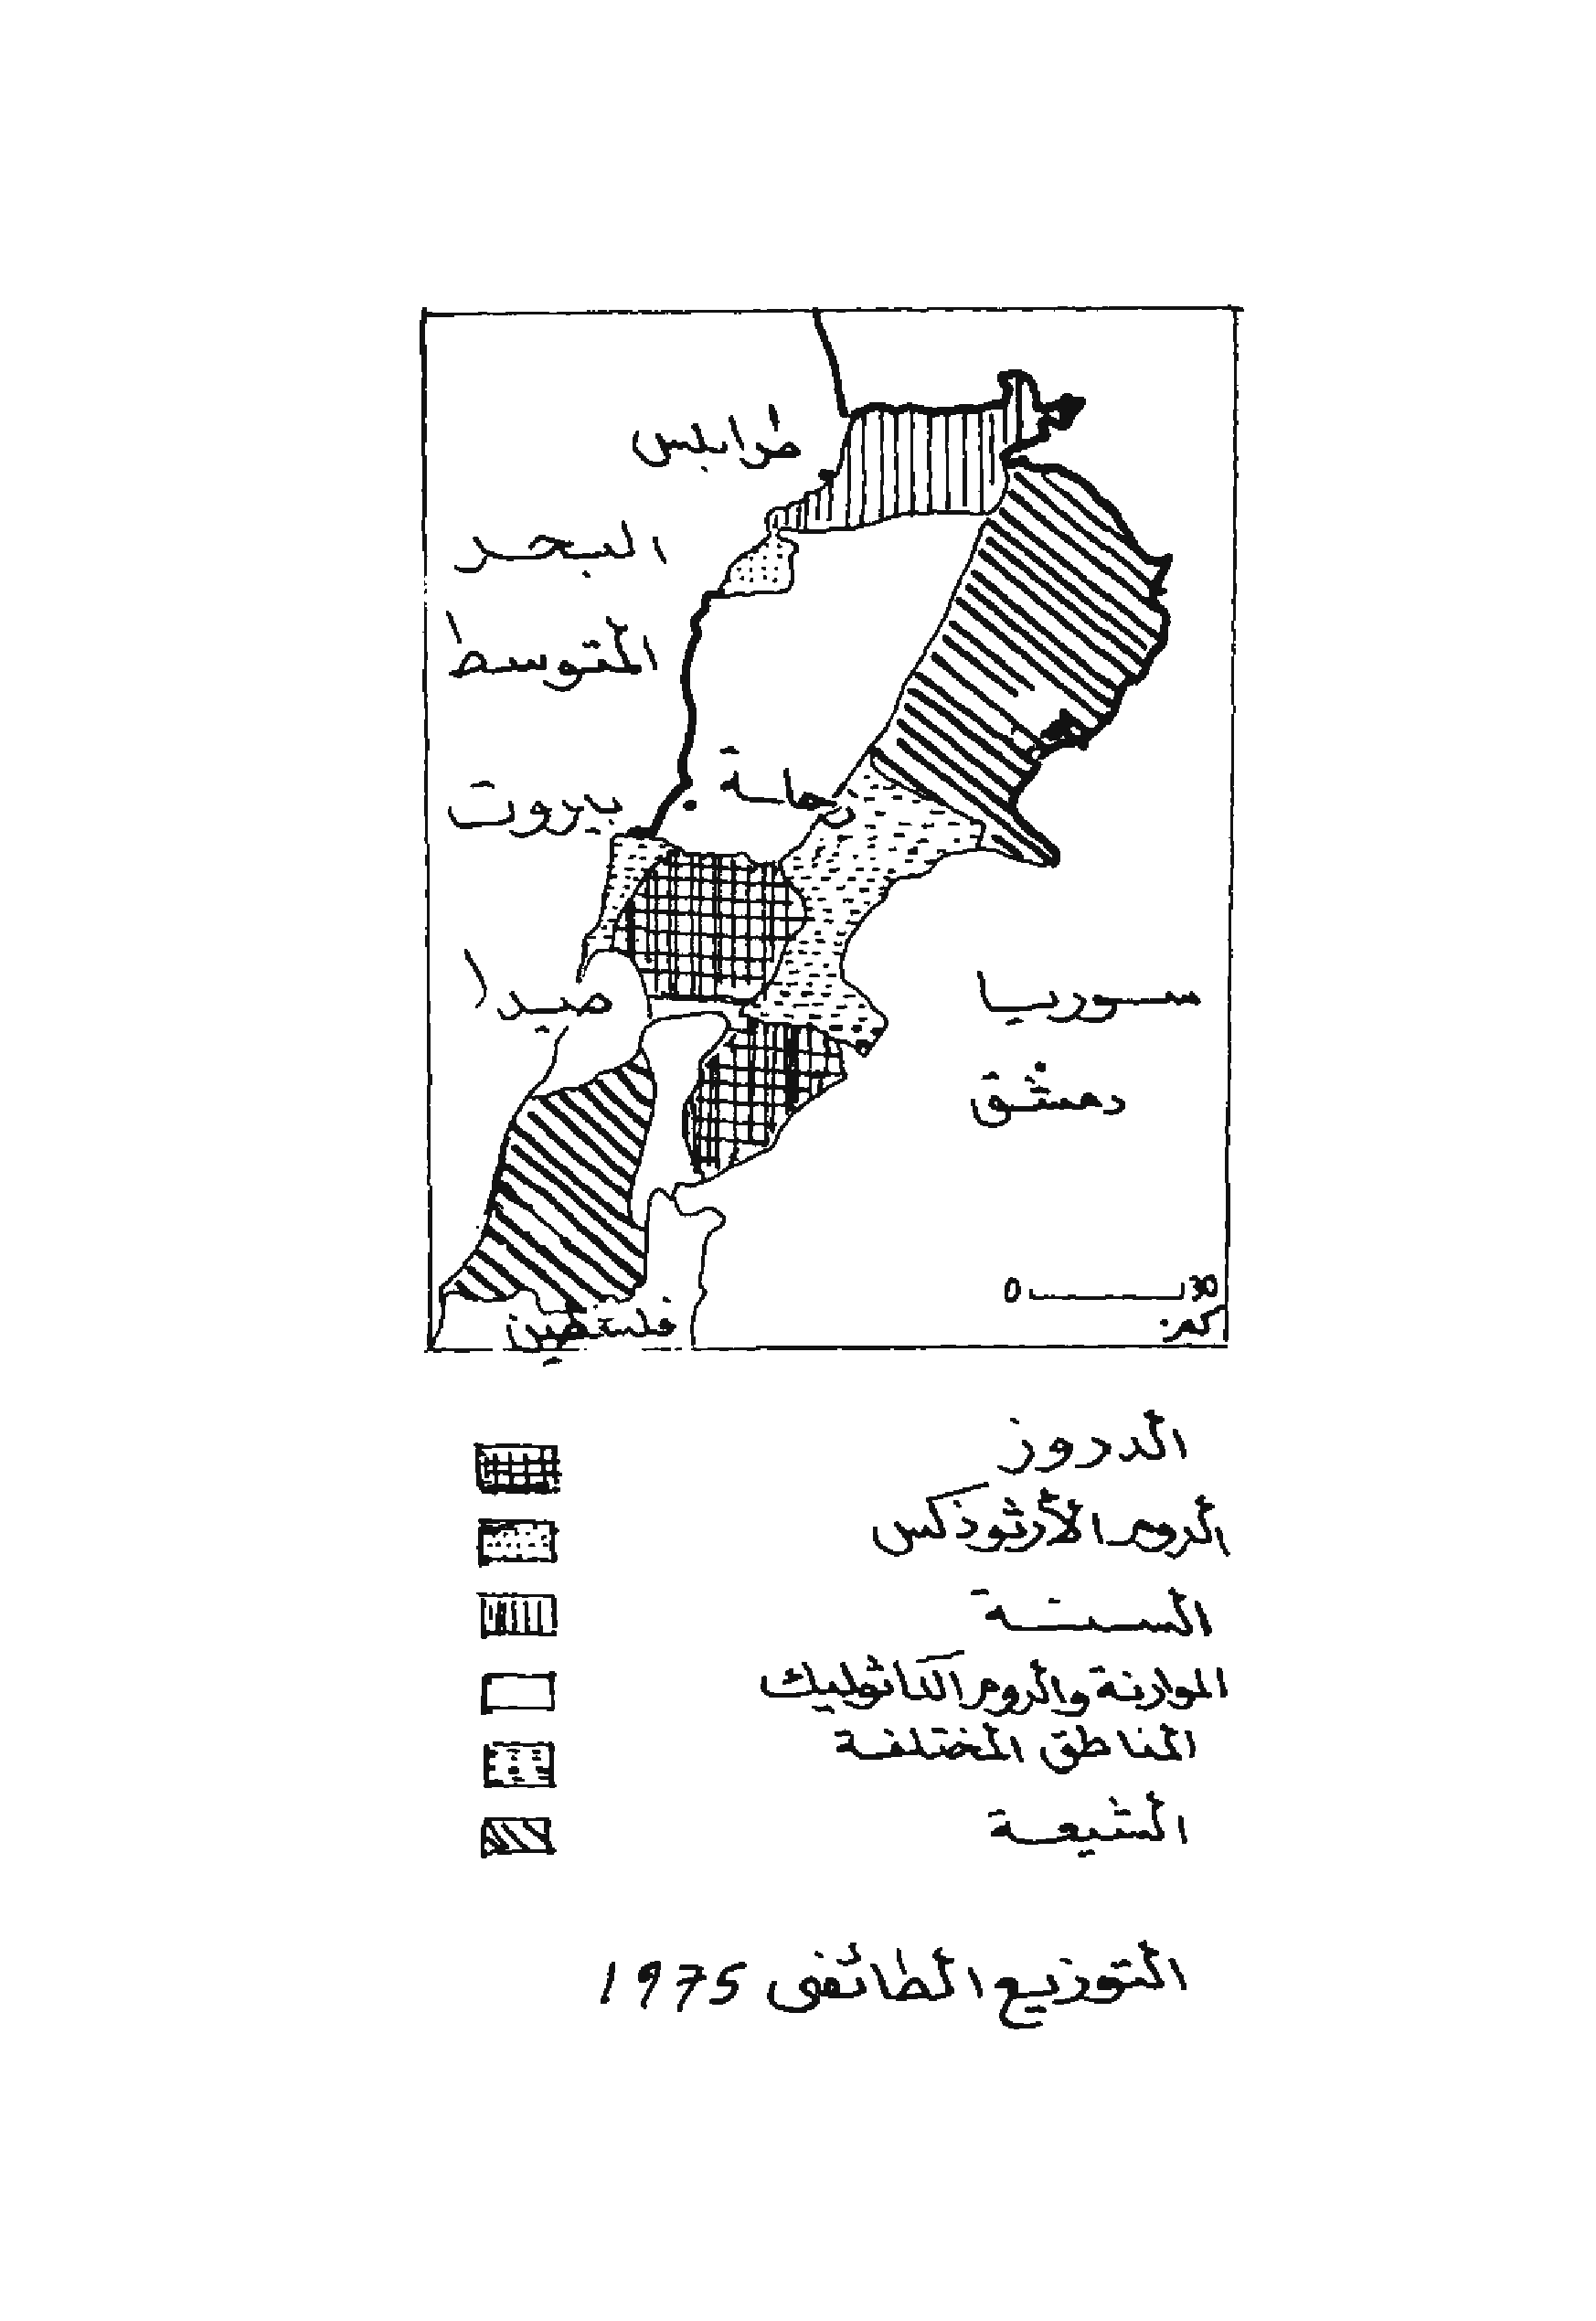 طرابلس
البحر
المتوسط
زحلة
بيروت
صيدا
سوريا
دمشق
فلسطين
0 30
كم
الدروز
الروم الأرثوذكس
السنة
الموارنة والروم الكاثوليك
المناطق المختلفة
الشيعة
التوزيع الطائفي 1975